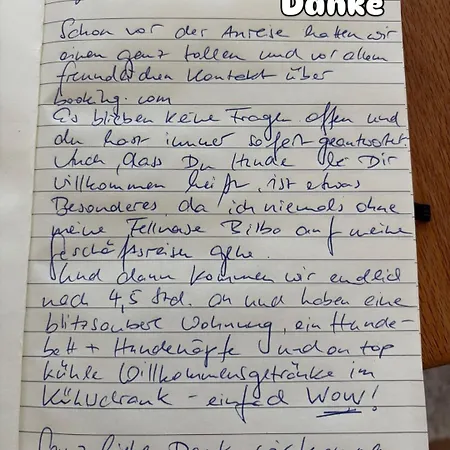 Danke
Schon vor der Anreise hatten wir
einen ganz tollen und vor allem
freundlichen Kontakt über
booking.com
Es blieben keine Fragen offen und
du hast immer sofort geantwortet.
Auch, dass Du Hunde bei Dir
willkommen heißt, ist etwas
Besonderes da ich niemals ohne
meine Fellnase Bilbo auf meine
Geschäftsreisen gehe.
Und dann kommen wir endlich
nach 4,5 Std. an und haben eine
blitzsaubere Wohnung, ein Hunde-
bett + Hundenäpfe und on top
kühle Willkommensgetränke im
Kühlschrank - einfach WOW!
liebe Dank